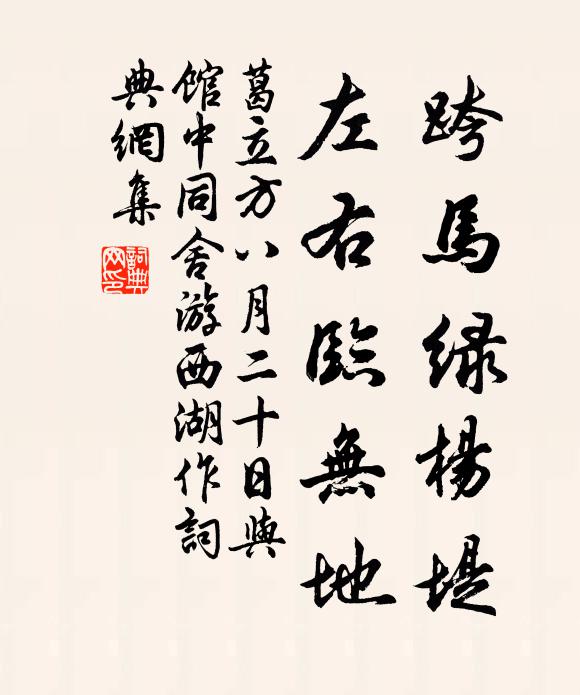 跨馬绿楊堤
左右臨無地
葛立方八月二十日與
馆中同舍游西湖作詞
典網集
詞典
网印